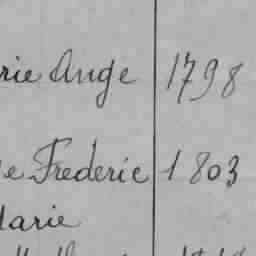 rie Ange 1798
e Frederic 1803
arie